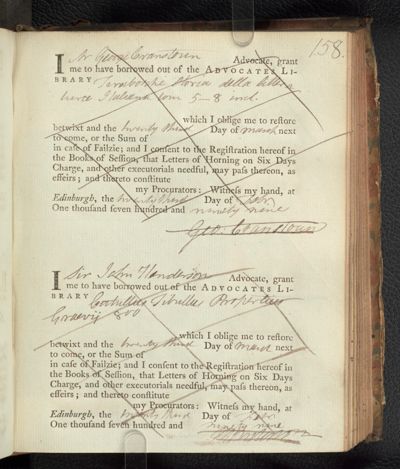 158.
I Mr George Cranstoun Advocate, grant
me to have borrowed out of the ADVOCATES LI-
BRARY Tiraboschi Storia della letter
Italiana tom 5-8 incl.
which I oblige me to restore
betwixt and the twenty third Day of March next
to come, or the Sum of
in case of Failzie; and I consent to the Registration hereof in
the Books of Session, that Letters of Horning on Six Days
Charge, and other executorials needful, may pass thereon, as
effeirs; and thereto constitute
my Procurators: Witness my hand, at
Edinburgh, the twenty third Day of
One thousand seven hundred and ninety nine
Geo. Cranstoun
I Sir John Henderson Advocate, grant
me to have borrowed out of the ADVOCATES LI-
BRARY Tibullus Propertius
Graevij 800
which I oblige me to restore
betwixt and the twenty third Day of March next
to come, or the Sum of
in case of Failzie; and I consent to the Registration hereof in
the Books of Session, that Letters of Horning on Six Days
Charge, and other executorials needful, may pass thereon, as
effeirs; and thereto constitute
my Procurators: Witness my hand, at
Edinburgh, the twenty third Day of
One thousand seven hundred and ninety nine